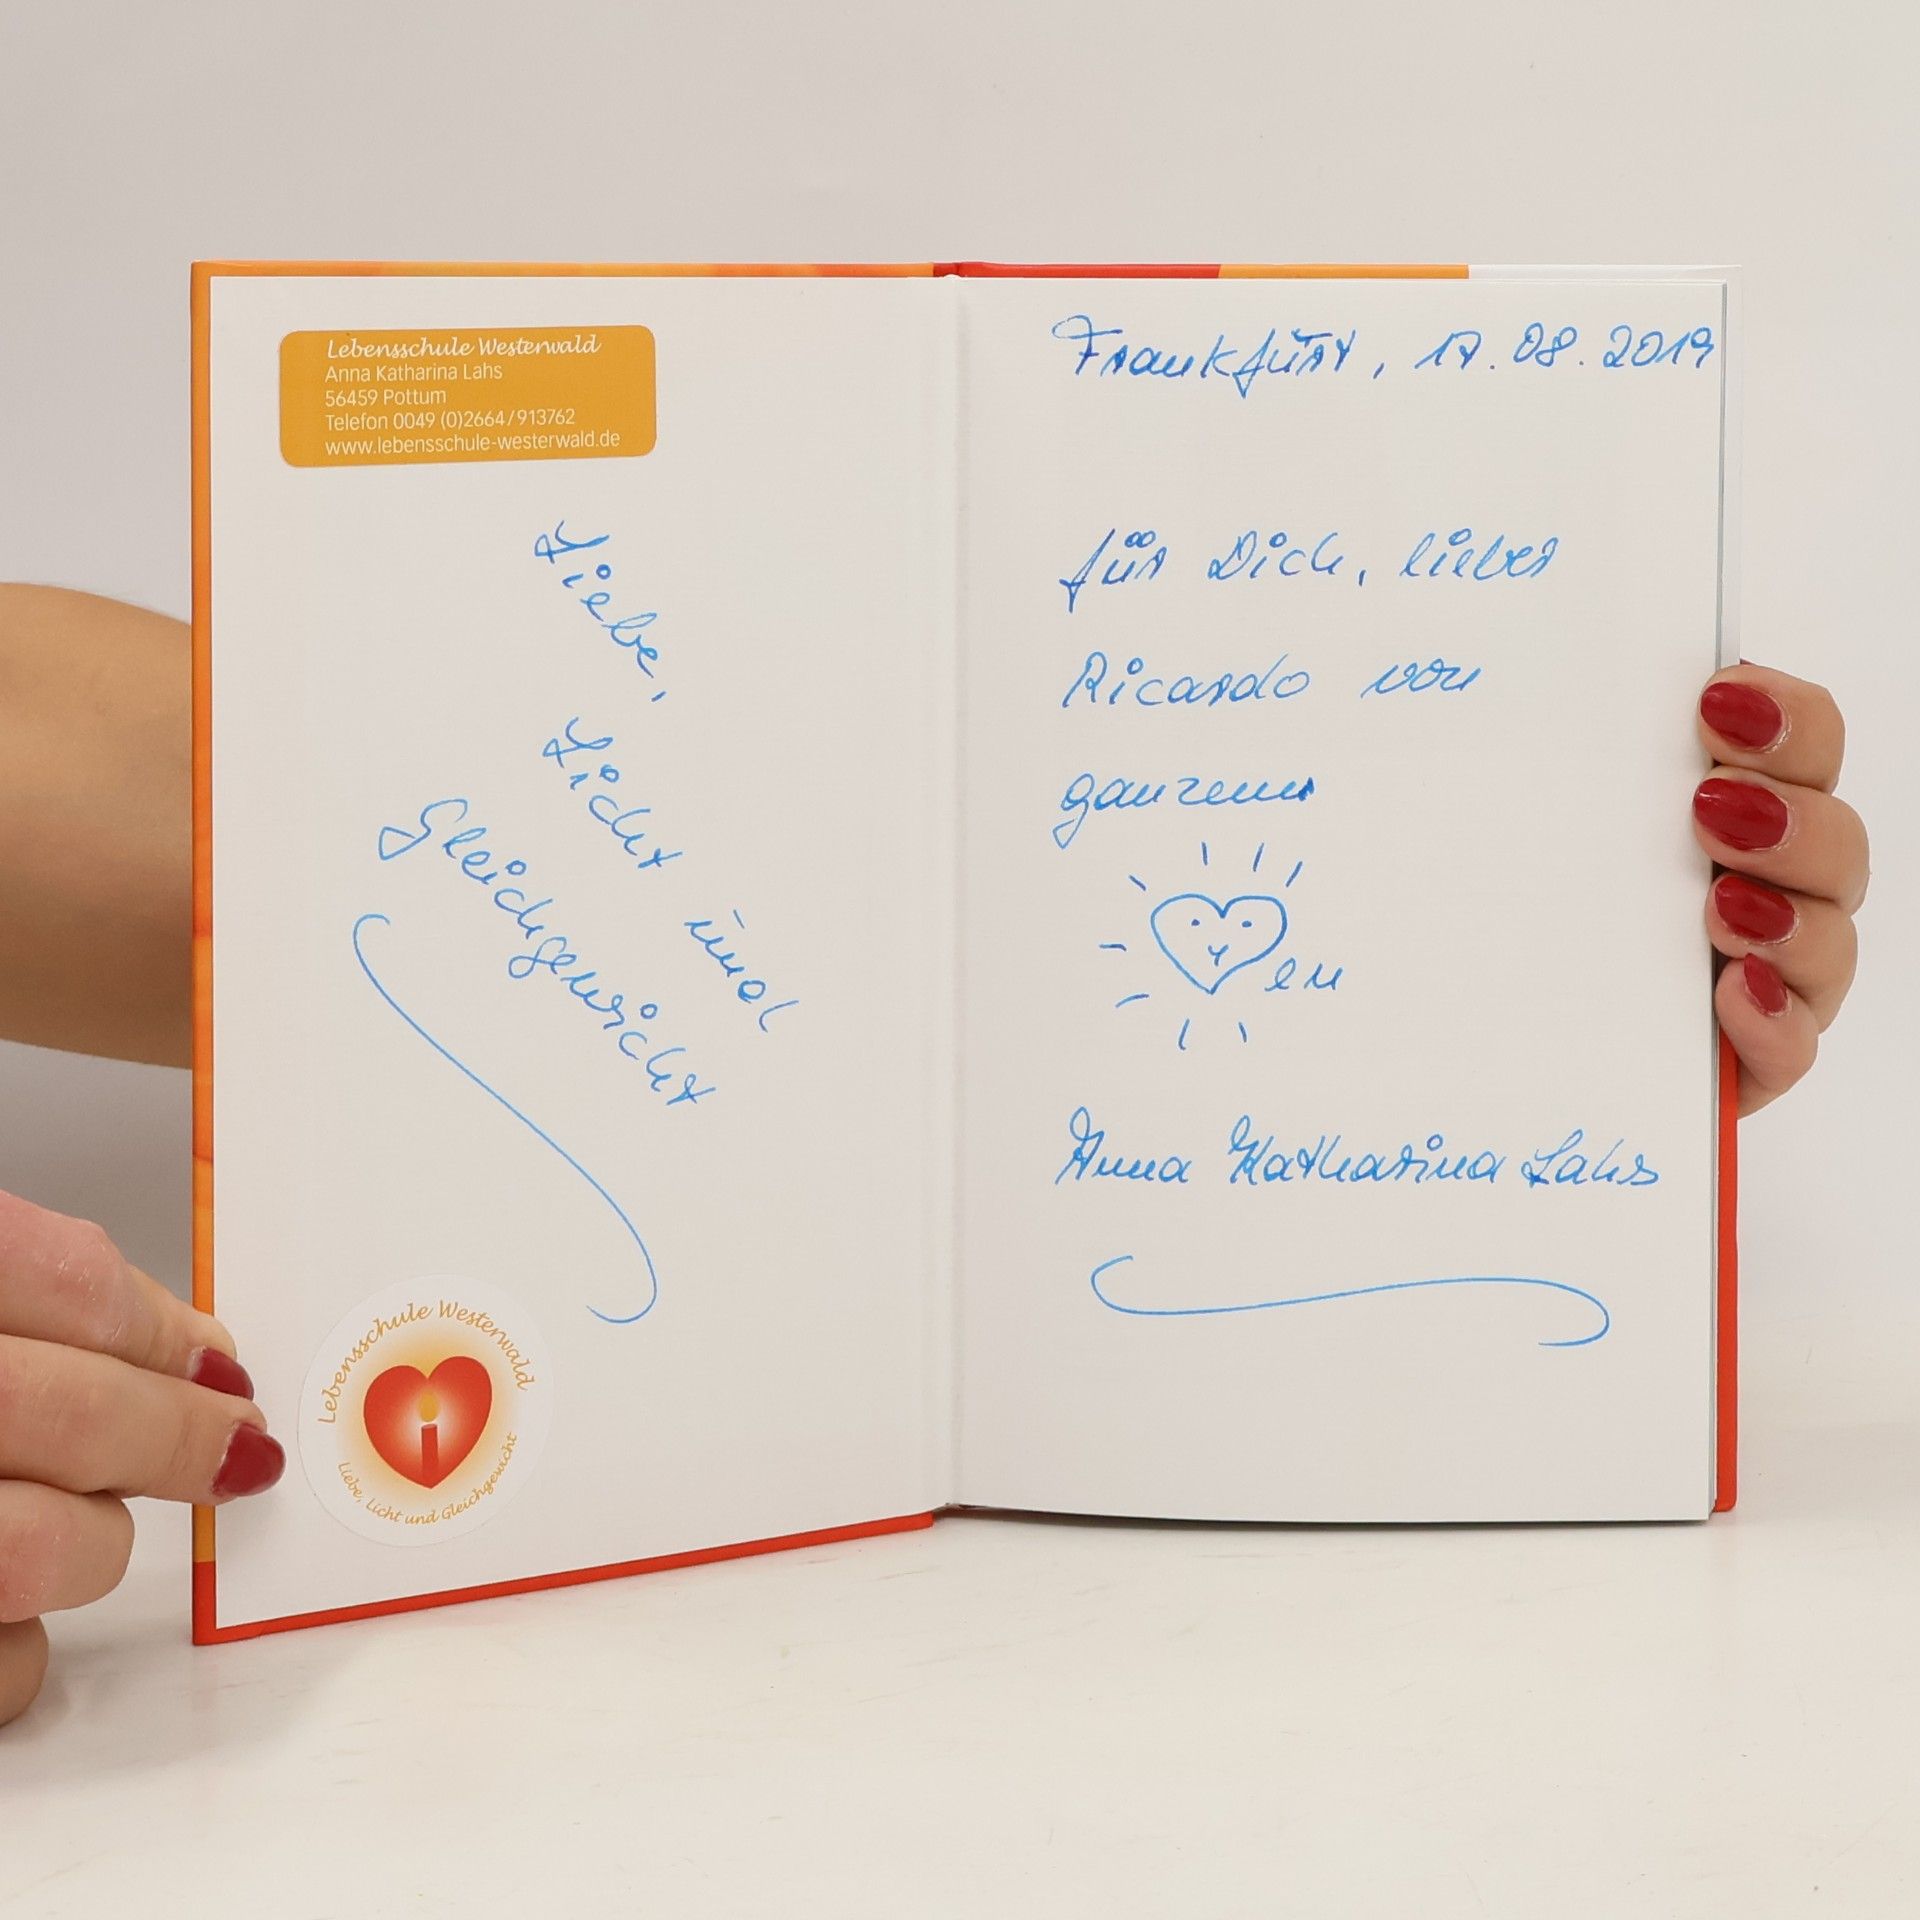 Lebensschule Westerwald
Anna Katharina Lahs
56459 Pottum
Telefon 0049 (0)2664/913762
www.lebensschule-westerwald.de
Liebe,
Licht und
Gleichgewicht
Lebensschule Westerwald
Liebe, Licht und Gleichgewicht
Frankfurt, 17.08.2019
für Dich, lieber
Ricardo von
ganzem
en
Anna Katharina Lahs